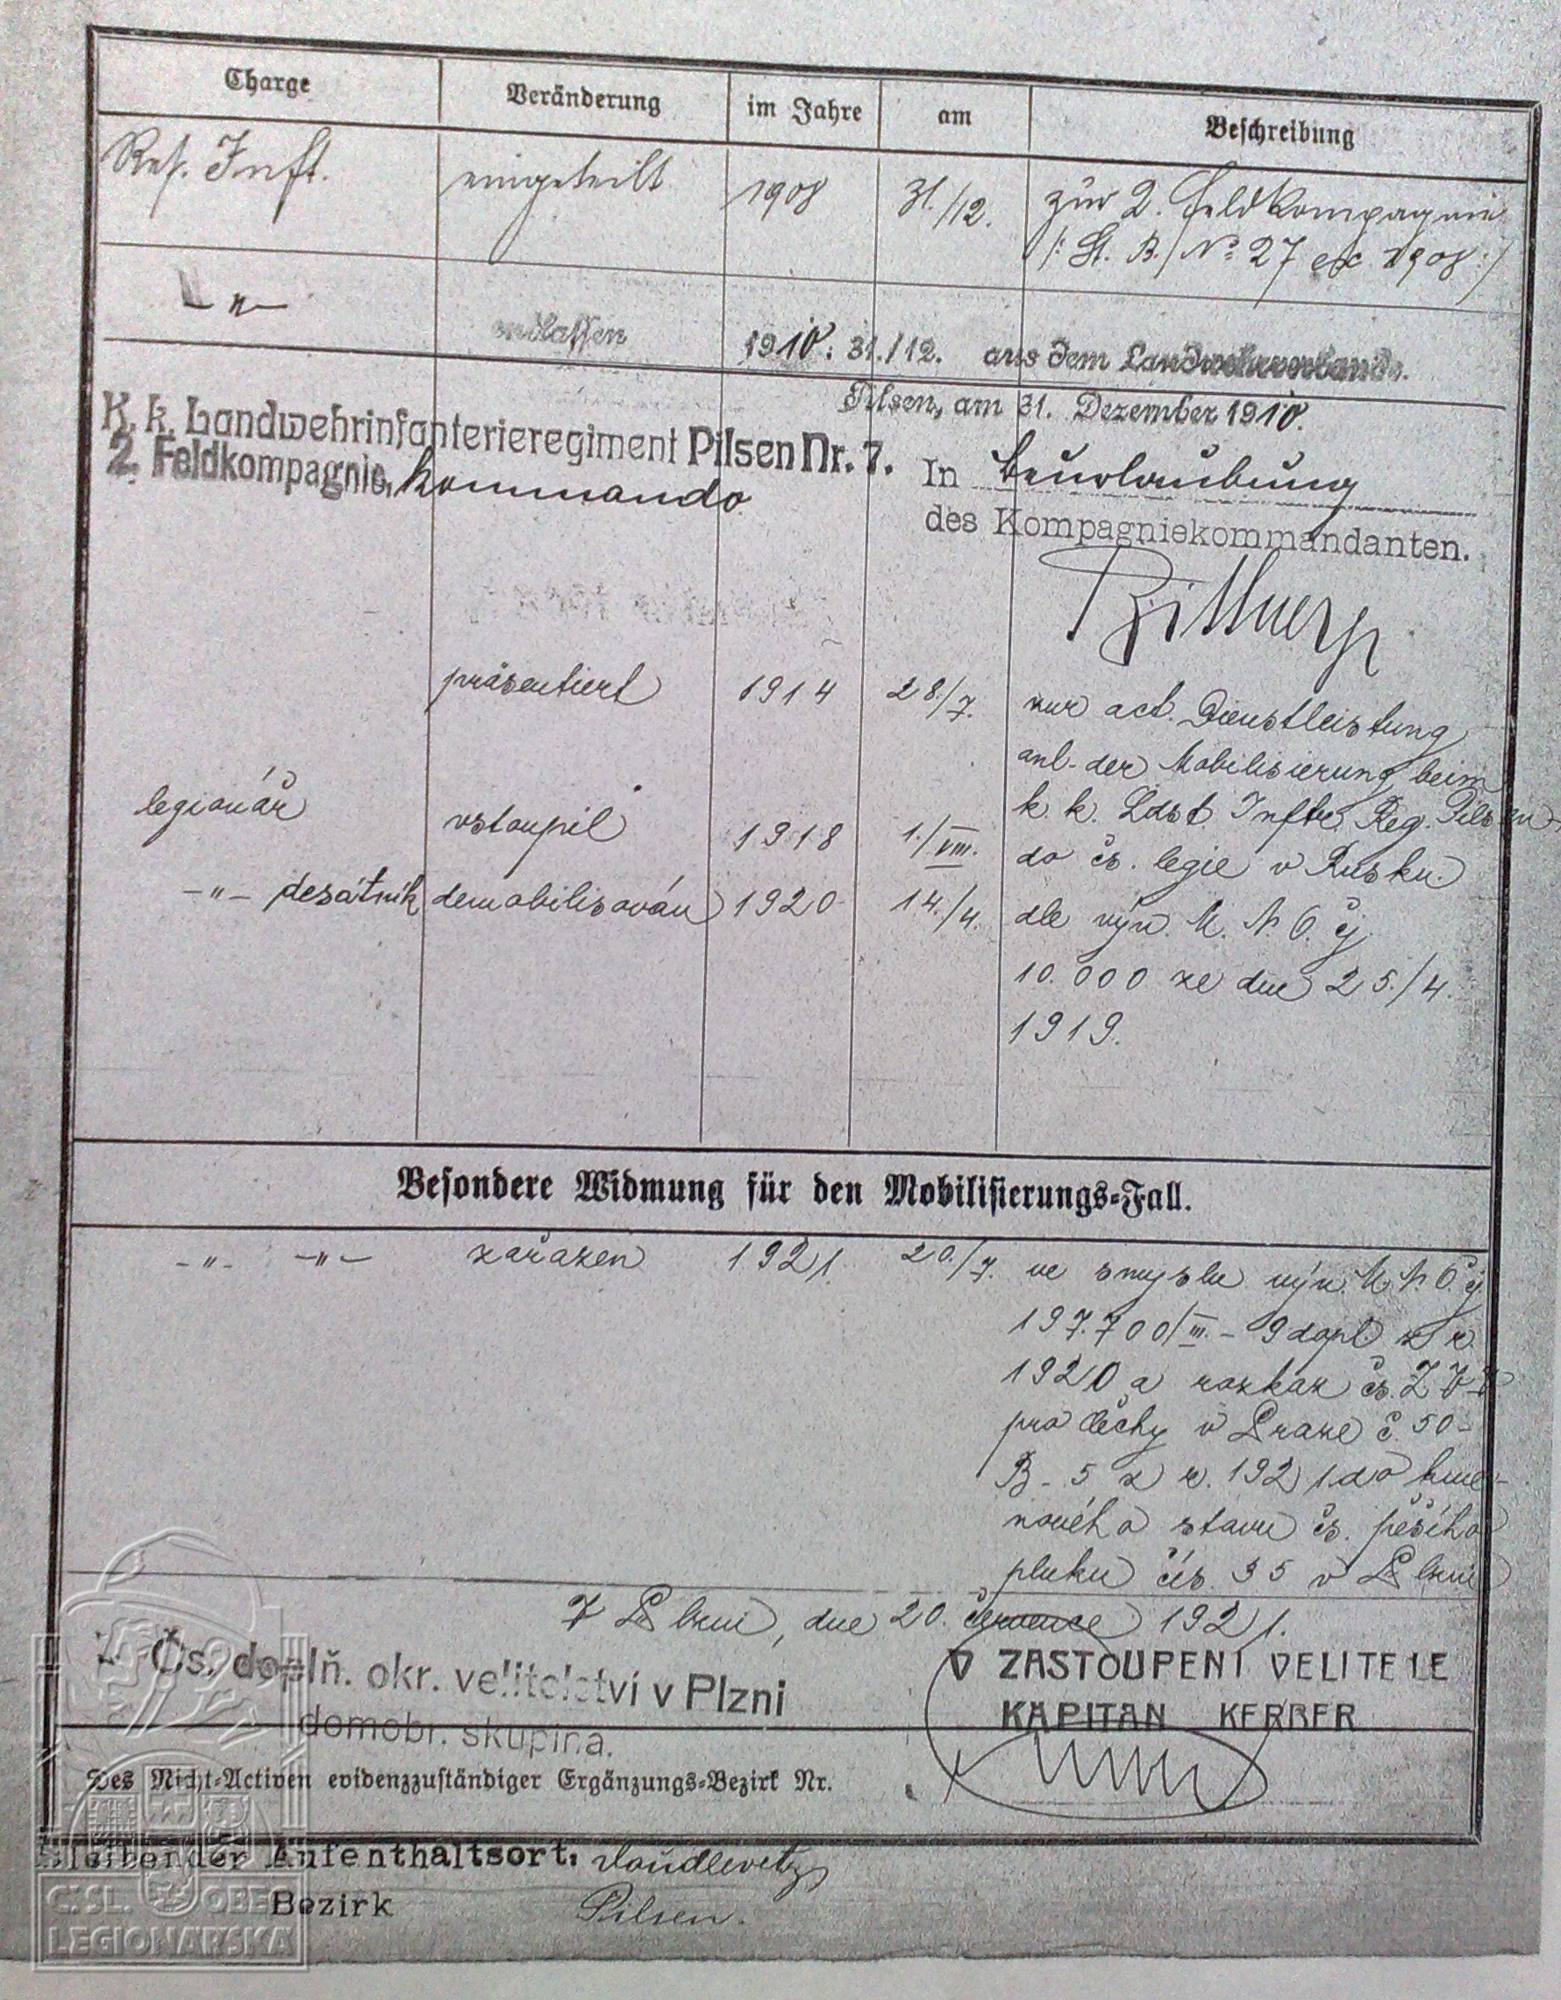 Charge Veränderung im Jahre am Beschreibung
Res. Inft. eingeteilt 1908 31./12. zur 2. Feldkompagnie
/: St. B. / No 27 ex 1908 :/
-„- entlassen 1910. 31./12. aus dem Landwehrverbande.
Pilsen, am 31. Dezember 1910.
K. k. Landwehrinfanterieregiment Pilsen Nr. 7.
2. Feldkompagnie, Kommando
In Beurlaubung
des Kompagniekommandanten.
präsentiert 1914 28./7. zur act. Dienstleistung
anl. der Mobilisierung beim
k. k. Ldst. Inftr. Reg. Pilsen
legionář vstoupil 1918 1./VIII. do čs. legie v Rusku.
-„- desátník demobilisován 1920 14./4. dle výn. M. N. O. čj.
10.000 ze dne 25./4.
1919.
Besondere Widmung für den Mobilisierungs-Fall.
-„- -„- zařazen 1921. 20./7. ve smyslu výn. M. N. O. čj.
197.700/III. - 9 dopl. z r.
1920 a rozkaz čs. Z. V. V.
pro Čechy v Praze č. 50-
B - 5 z r. 1921. do kme-
nového stavu čs. pěšího
pluku čís. 35 v Plzni
V Plzni, dne 20. července 1921.
Čs. doplň. okr. velitelství v Plzni
domobr. skupina.
V ZASTOUPENÍ VELITELE
KAPITAN KERRER
Des Nicht-Activen evidenzzuständiger Ergänzungs-Bezirk Nr.
Bleibender Aufenthaltsort:
Bezirk Pilsen.
Č.SL. OBEC
LEGIONÁŘSKÁ